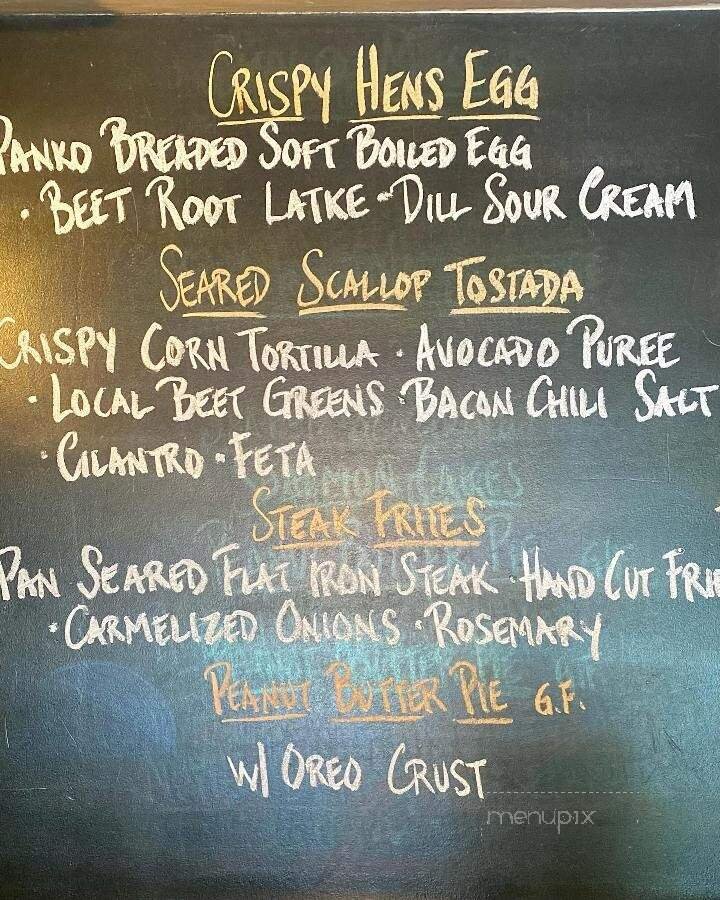 CRISPY HENS EGG
PANKO BREADED SOFT BOILED EGG
· BEET ROOT LATKE · DILL SOUR CREAM
SEARED SCALLOP TOSTADA
CRISPY CORN TORTILLA · AVOCADO PUREE
· LOCAL BEET GREENS · BACON CHILI SALT
· CILANTRO · FETA
SALMON CAKES
STEAK FRITES
PAN SEARED FLAT IRON STEAK · HAND CUT FRIE
· CARMELIZED ONIONS · ROSEMARY
PEANUT BUTTER PIE G.F.
W/ OREO CRUST
menupix